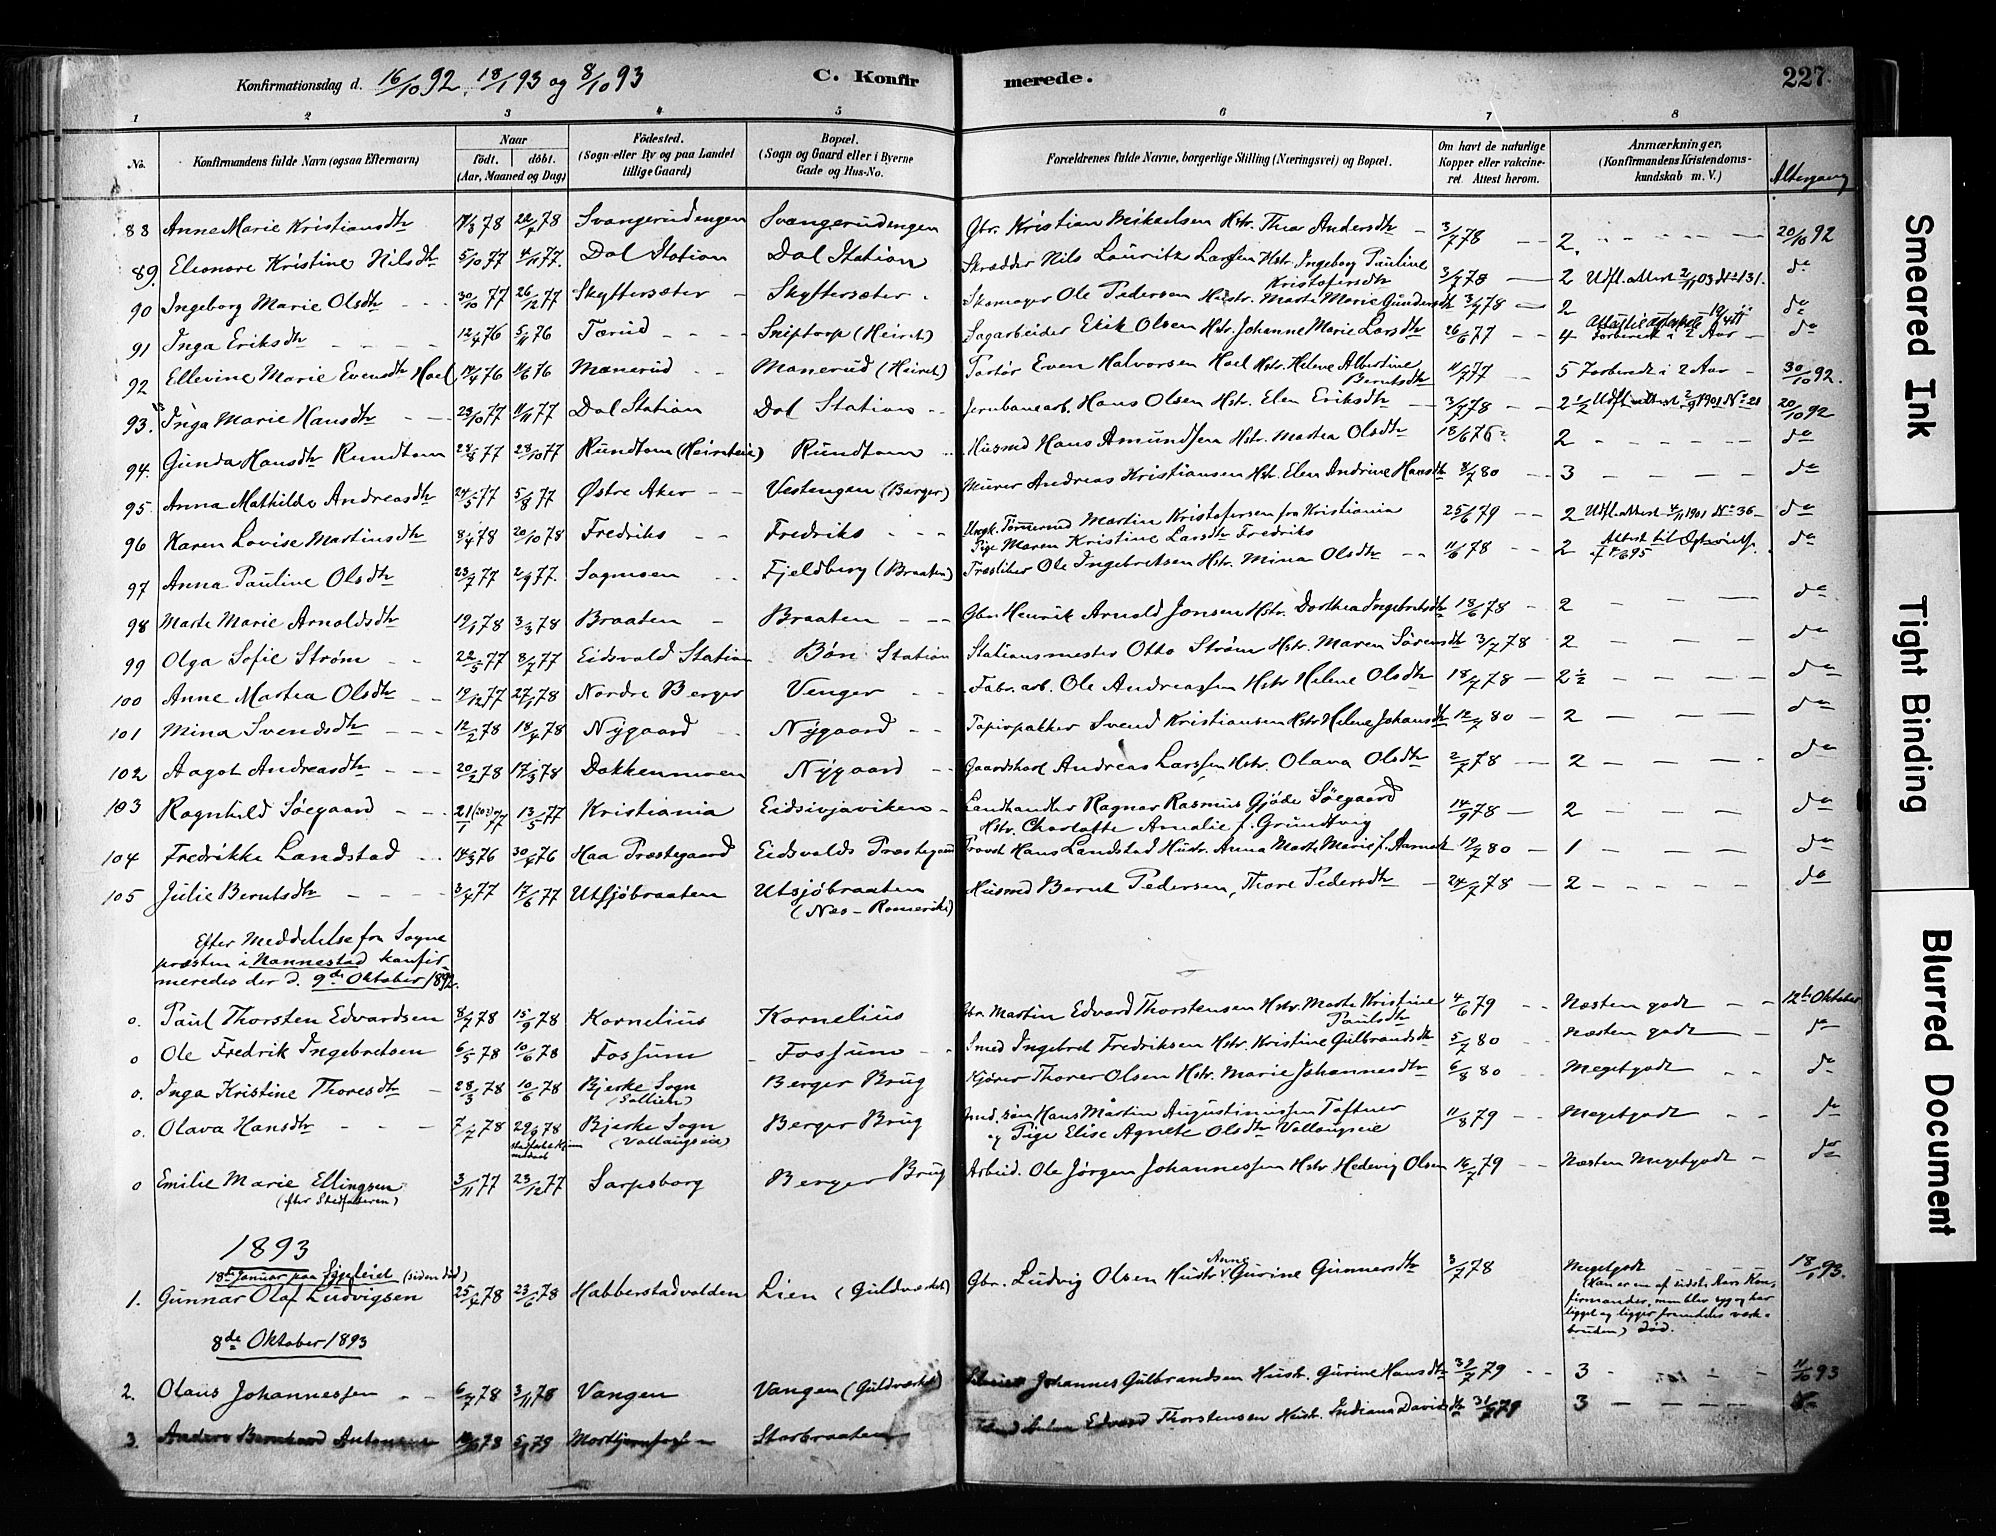 Konfirmationsdag d. 16/10 92, 18/1 93 og 8/10 93 C. Konfir merede. 227.
1 2 3 4 5 6 7 8
No. Konfirmandens fulde Navn (ogsaa Efternavn) Naar födt. döbt. (Aar, Maaned og Dag) Födested. (Sogn eller By og paa Landet tillige Gaard) Bopæl. (Sogn og Gaard eller i Byerne Gade og Hus-No. Forældrenes fulde Navne, borgerlige Stilling (Næringsvei) og Bopæl. Om havt de naturlige Kopper eller vakcineret. Attest herom. Anmærkninger. (Konfirmandens Kristendomskundskab m. V.) Altergang
88 Anne Marie Kristiansdtr 78 78 Svangerudengen Svangerudengen Gbr. Kristian Mikaelsen Hstr. Thea Andersdtr 3/7 78 2 20/10 92
89. Eleonore Kristine Nilsdtr 5/10 77 4/11 77. Dal Station Dal Station Skrædder Nils Lauritz Larsen Hstr. Ingeborg Pauline Kristofersdtr 3/7 78 2 do
90 Ingeborg Marie Olsdtr 30/10 77 26/12 77 Skyttersæter Skyttersæter Skomager Ole Pedersen Hustr. Marte Marie Gundersdtr 3/7 78 2 do
91 Inga Eriksdtr 12/4 76 5/11 76 Tærud Sniptorp (Heiret) Sagarbeider Erik Olsen Hstr. Johanne Marie Larsdtr 26/6 77 4 Forberedt i 2 Aar do
92 Ellevine Marie Evensdtr Hoel 76 76 Mænerud Manerud (Heiret) Even Halvorsen Hoel Hstr. Helene Albertine Berntsdtr 77 5 Forberedt i 2 Aar 30/10 92.
93. Inga Marie Hansdtr 23/10 77 77 Dal Station Dal Station Jernbanearb. Hans Olsen Hstr. Elen Eriksdtr 3/7 78 2 1/2 20/10 92
94. Gunda Hansdtr Rundtom 77 28/10 77 Rundtom Rundtom Husmd Hans Amundsen Hstr. Martea Olsdtr 18/6 76 2 do
95. Anna Mathilde Andreasdtr 24/5 77 5/8 77 Østre Aker Vestengen (Berger) Murer Andreas Kristiansen Hstr. Elen Andrine Hansdtr 8/7 80 3 do
96 Karen Lovise Martinsdtr 8/4 78 20/10 78 Fredriks Fredriks Ungk. Tømmermd Martin Kristofersen fra Kristiania Pige Maren Kristine Larsdtr Fredriks 25/6 79 2 Udfl. attest 4/11 1901 No 36 do
97 Anna Pauline Olsdtr 23/7 77 2/9 77. Sagmoen Fjeldberg (Braaten) Træsliber Ole Ingebretsen Hstr. Mina Olsdtr 11/6 78 2 do
98 Marte Marie Arnoldsdtr 19/1 78 3/3 78 Braaten Braaten Gbr. Henrik Arnold Jonsen Hstr. Dorthea Ingebretsdtr 18/6 78 2 do
99 Olga Sofie Strøm 22/5 77 8/7 77 Eidsvold Station Bøn Station Stationsmester Otto Strøm Hstr. Maren Sørensdtr 3/7 78 2 do
100 Anne Martea Olsdtr 19/12 77 27/1 78 Nordre Berger Venger Fabr. arb. Ole Andreassen Hstr. Helene Olsdtr 18/7 78 2 1/2 do
101 Mina Svendsdtr 12/2 78 18/4 78 Nygaard Nygaard Papirpakker Svend Kristiansen Hstr Helene Johansdtr 12/7 80 2 do
102 Aagot Andreasdtr 20/2 78 17/3 78 Dokkenmoen Nygaard Gaardskarl Andreas Larssen Hstr. Olava Olsdtr 2/7 78 2 do
103 Ragnhild Søegaard 21/1 77 13/5 77 Kristiania Eidsivjaviken Landhandler Ragnar Rasmus Gjøde Søegaard Hstr. Charlotte Amalie f. Grundtvig 14/9 78 2 do
104 Fredrikke Landstad 14/3 76 30/4 76 Haa Præstegaard Eidsvolds Præstegaard Provst Hans Landstad Hustr. Anna Marte Marie f. Aarnes 19/7 80 1 do
105 Julie Berntsdtr 3/4 77 17/6 77 Utsjøbraaten Utsjøbraaten (Næs - Romerike) Husmd Bernt Pedersen, Thore Pedersdtr 24/7 78 2 do
Efter Meddelelse fra Sogne
præsten i Nannestad konfir
meredes der d. 9de Oktober 1892.
o. Paul Thorsten Edvardsen 8/7 78 15/9 78 Kornelius Kornelius Gbr. Martin Edvard Thorstensen Hstr. Marte Kristine Paulsdtr 4/6 79 Næsten godt 12te Oktober
o Ole Fredrik Ingebretsen 6/5 78 10/6 78 Fossum Fossum Smed Ingebret Fredriksen Hstr. Kristine Gulbrandsdtr 5/7 80 Næsten godt do
o. Inga Kristine Thoresdtr 28/3 78 10/6 78 Bjerke Sogn (Sollien) Berger Brug Kjører Thorer Olsen Hstr. Marie Johannesdtr 6/8 80 Megetgodt do
o. Olava Hansdtr 7/7 78 29/9 78 Bjerke Sogn (Vollaugseie) Berger Brug Hans Martin Augustinussen Toftner og Pige Elise Agnete Olsdtr Vollaugseie 11/8 79 Megetgodt do
o Emilie Marie Ellingsen (efter Stedfaderen) 3/11 77 23/12 77 Sarpsborg Berger Brug Arbeid. Ole Jørgen Johannessen Hstr. Hedevig Olsen 16/7 79 Næsten Megetgodt do
1893
18de Januar paa Sygeleiet (siden død)
1. Gunnar Olaf Ludvigsen 25/4 78 23/6 78 Habberstadvolden Lien (Guldværket) Gbr. Ludvig Olsen Hustr. Anne Gurine Gunnersdtr 3/7 78 Megetgodt 18/1 93.
(Han er en af sidste Aars Kon-
firmander, men blev syg og har
ligget og ligger fremdeles værk-
bruden) død.
8de Oktober 1893
2. Olaus Johannessen 6/7 78 3/11 78 Vangen Vangen (Guldværket) Johannes Gulbrandsen Hustr. Gurine Hansdtr 79 3 11/10 93
3. Anders Bernhard Antonsen 78 79 Starbraaten Edvard Thorstensen Hustr. Indiana Davidsdtr 79 3 do
Smeared Ink
Tight Binding
Blurred Document